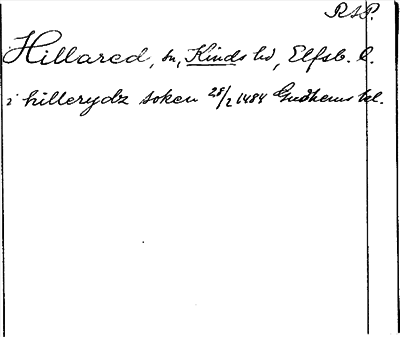 RAP.
Hillared, sn, Kinds hd, Elfsb. l.
i hillerydz soken 28/2 1484 Gudhems kl.